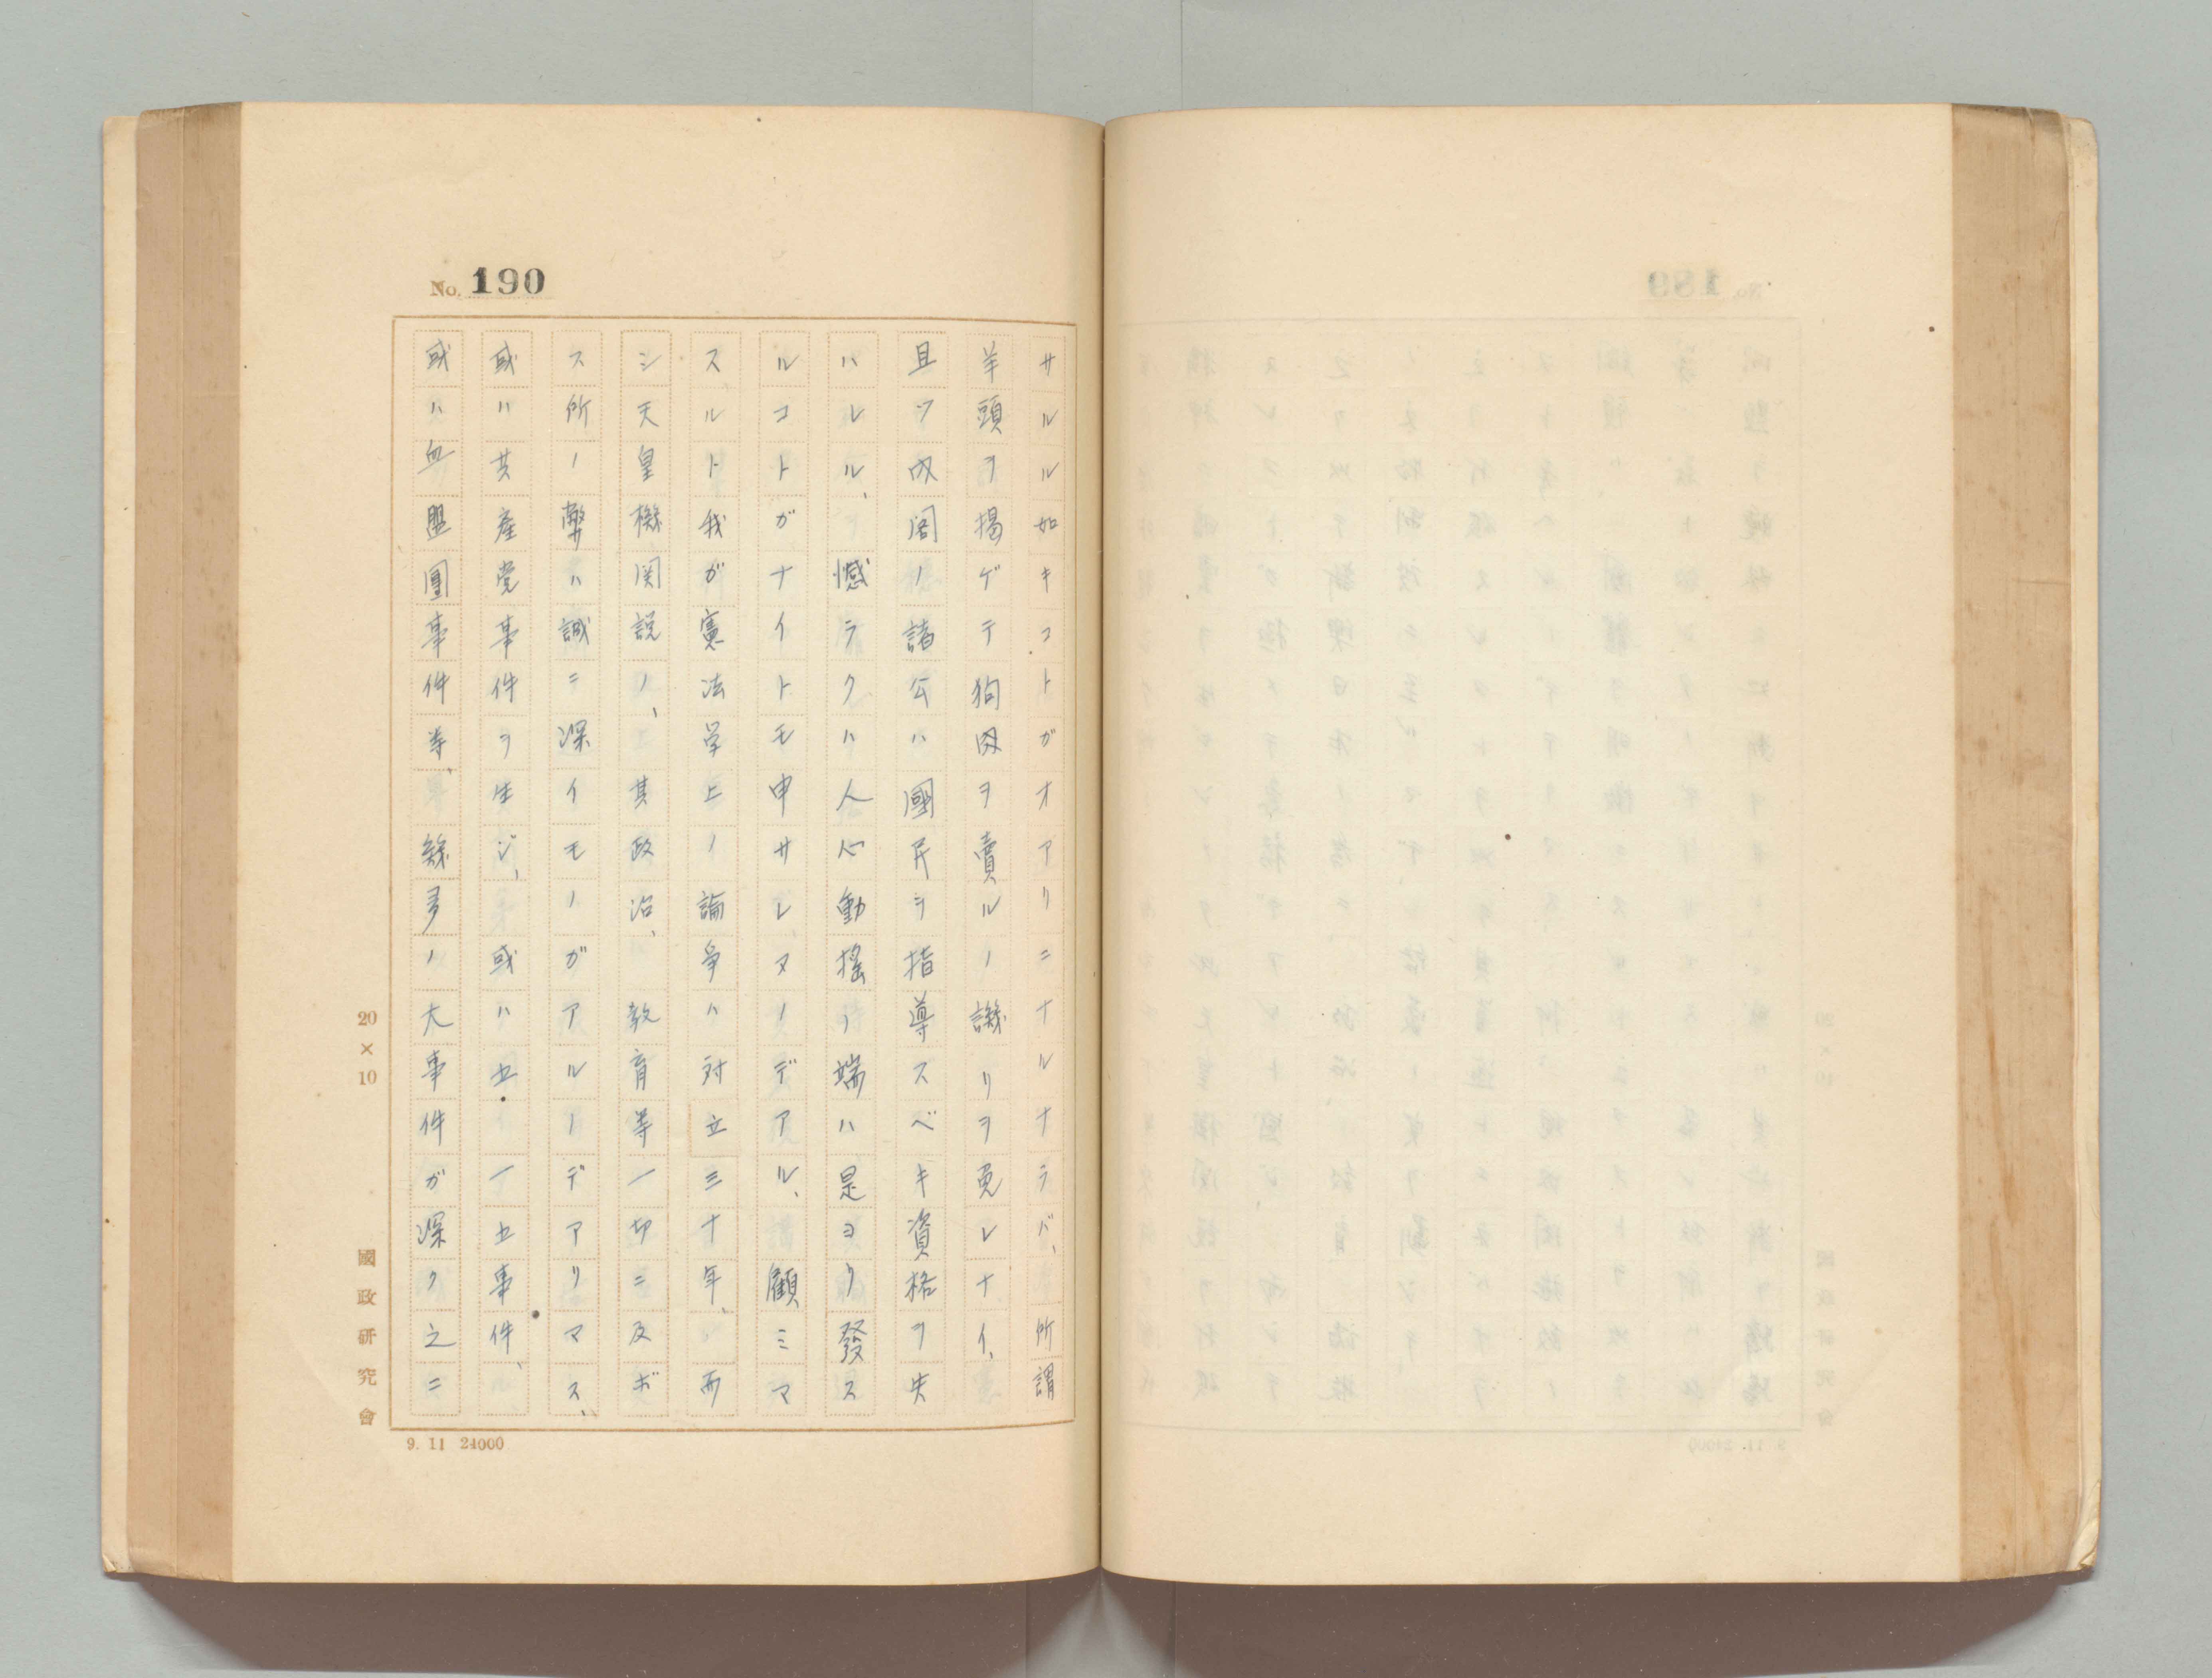 No. 190
サルル如キコトガオアリニナルナラバ、所謂
羊頭ヲ掲ゲテ狗肉ヲ賣ルノ譏リヲ免レナイ、
且ツ内閣ノ諸公ハ國民ヲ指導スベキ資格ヲ失
ハレル、憾ラクハ人心動揺ノ端ハ是ヨリ發ス
ルコトガナイトモ申サレヌノデアル、顧ミマ
スルト我ガ憲法学上ノ論争ハ対立三十年、而
シ天皇機関説ノ、其政治、教育等一切ニ及ボ
ス所ノ弊ハ誠ニ深イモノガアルノデアリマス、
或ハ共産党事件ヲ生ジ、或ハ五・一五事件、
或ハ血盟團事件等、幾多ノ大事件ガ深ク之ニ
20×10
國政研究會
9. 11 24000